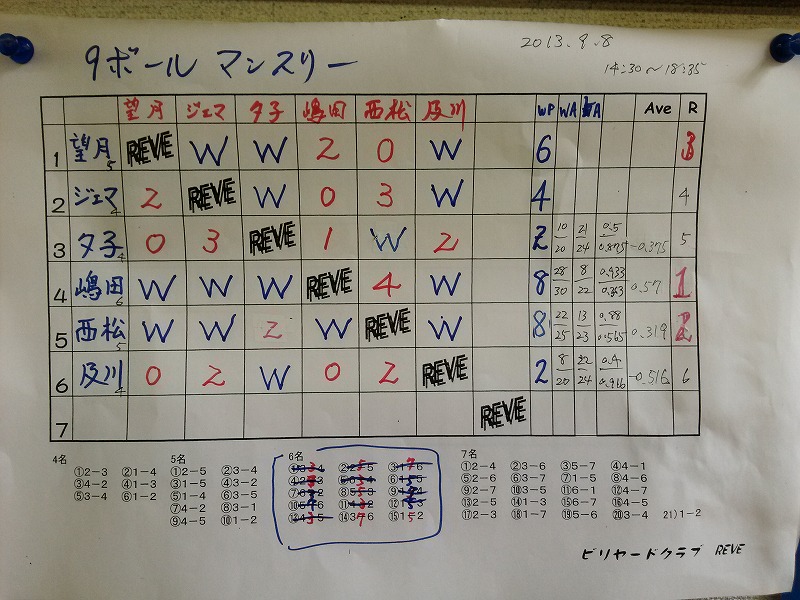 2013.9.8
9ボール マンスリー
14:30〜18:35
望月 ジェマ 夕子 嶋田 西松 及川 WP WA Ave R
1 望月 5 REVE W W 2 0 W 6 3
2 ジェマ 4 2 REVE W 0 3 W 4 4
3 夕子 4 0 3 REVE 1 W 2 2 10/20 21/24 0.5/0.875 -0.375 5
4 嶋田 6 W W W REVE 4 W 8 28/30 8/22 0.933/0.363 0.57 1
5 西松 5 W W 2 W REVE W 8 22/25 13/23 0.88/0.565 0.319 2
6 及川 4 0 2 W 0 2 REVE 2 8/20 22/24 0.4/0.916 -0.516 6
7 REVE
4名 5名 6名 7名
①2-3 ②1-4 ①2-5 ②3-4 ①2-4 ②3-6 ③5-7 ④4-1
③4-2 ④1-3 ③1-5 ④2-4 ⑤2-6 ⑥3-7 ⑦5-1
⑤3-4 ⑥1-2 ⑤1-4 ⑥3-5 ⑨2-7 ⑩3-5 ⑪6-1 ⑫4-7
⑦4-2 ⑧3-1 ⑬2-5 ⑭1-3 ⑮7-6 ⑯4-5
⑨4-5 ⑩1-2 ⑭3-6 ⑮1-2 ⑰2-3 ⑱1-7 ⑲5-6 ⑳3-4 21)1-2
ビリヤードクラブ REVE